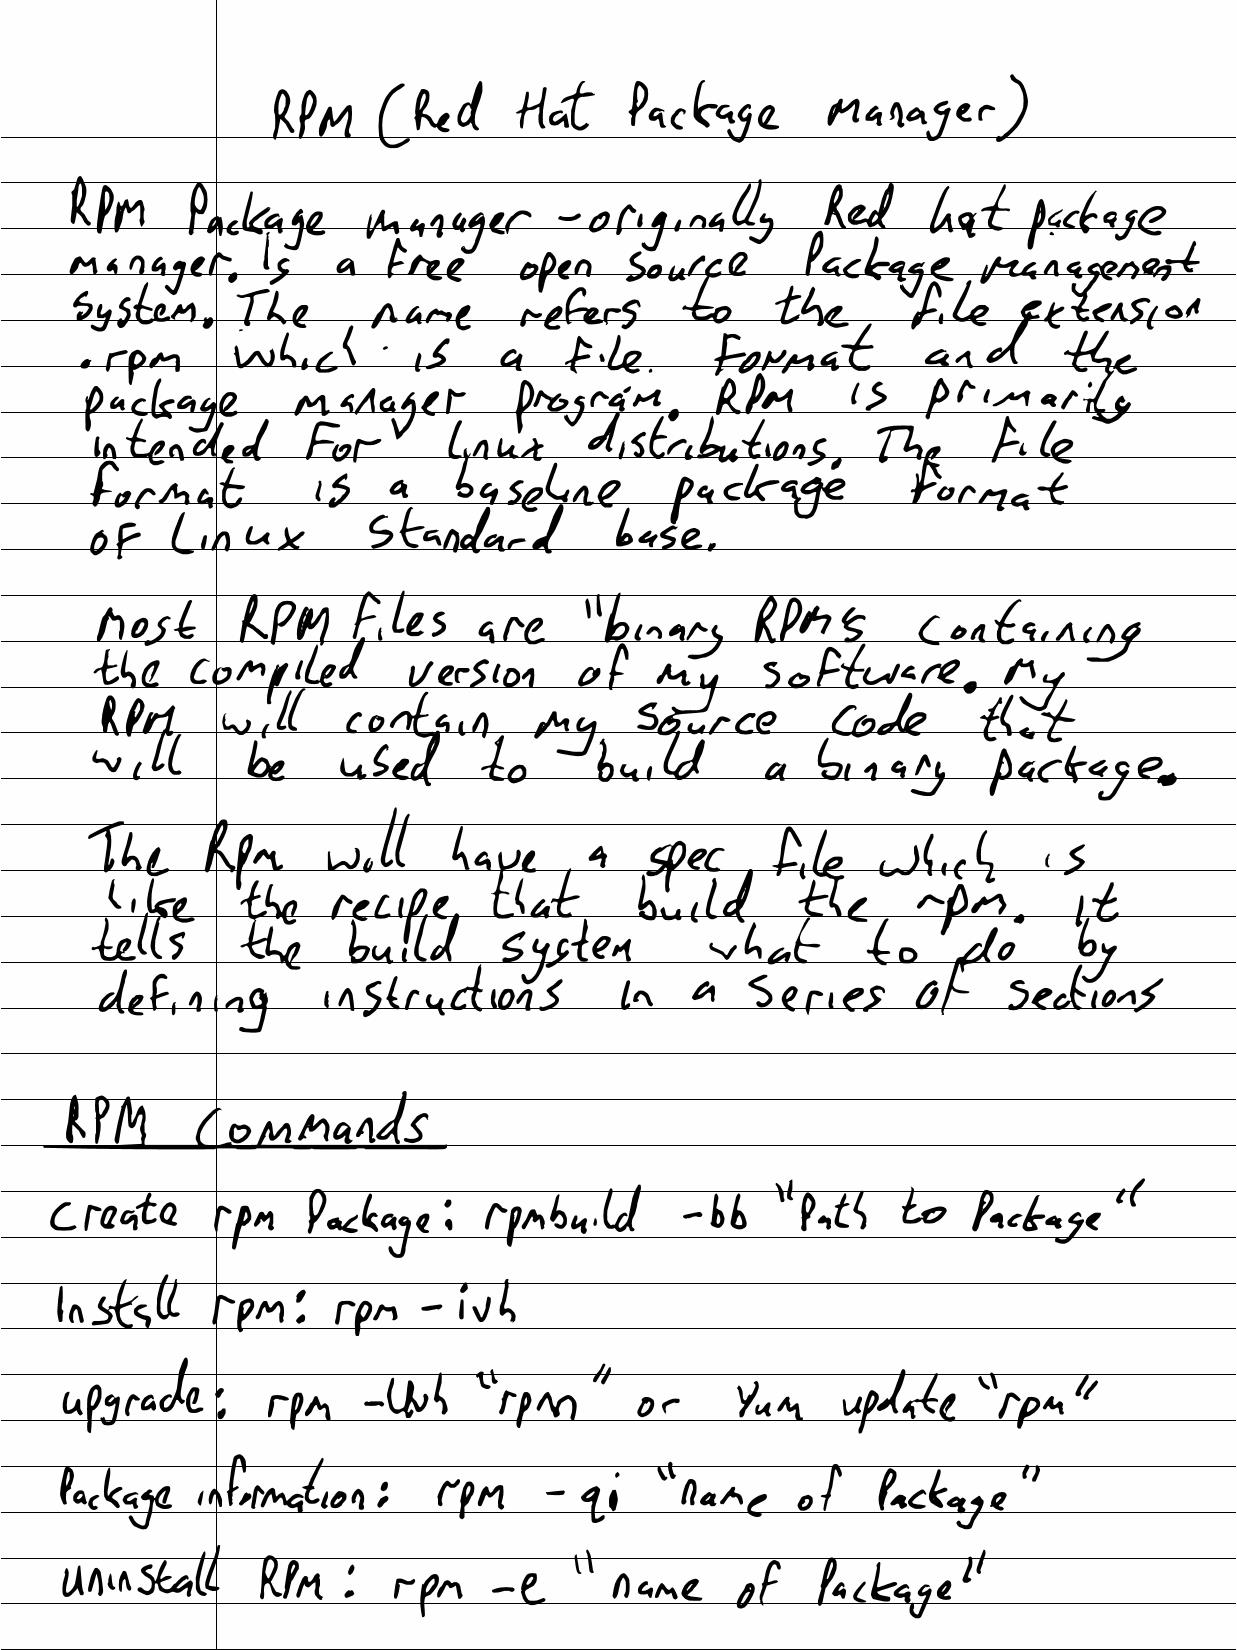 RPM (Red Hat Package Manager)
RPM Package manager - originally Red hat package
manager. Is a free open source Package management
system. The name refers to the file extension
.rpm which is a file format and the
package manager program. RPM is primarily
intended for linux distributions. The file
format is a baseline package format
of Linux Standard base.
most RPM files are "binary RPMs containing
the compiled version of my software. my
RPM will contain my source code that
will be used to build a binary package.
The Rpm will have a spec file which is
like the recipe that build the rpm. it
tells the build system what to do by
defining instructions in a series of sections
RPM Commands
create rpm Package: rpmbuild -bb "Path to Package"
Install rpm: rpm -ivh
upgrade: rpm -Uvh "rpm" or Yum update "rpm"
Package information: rpm -qi "name of Package"
uninstall RPM: rpm -e "name of Package"